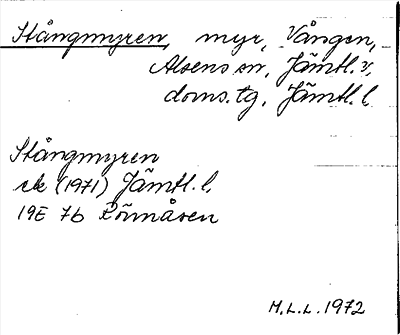 Stångmyren, myr, Vången,
Alsens sn, Jämtl. v,
doms.tg, Jämtl. l.
Stångmyren
ek (1971) Jämtl. l.
19E 7b Rönnåsen
M.L.L. 1972